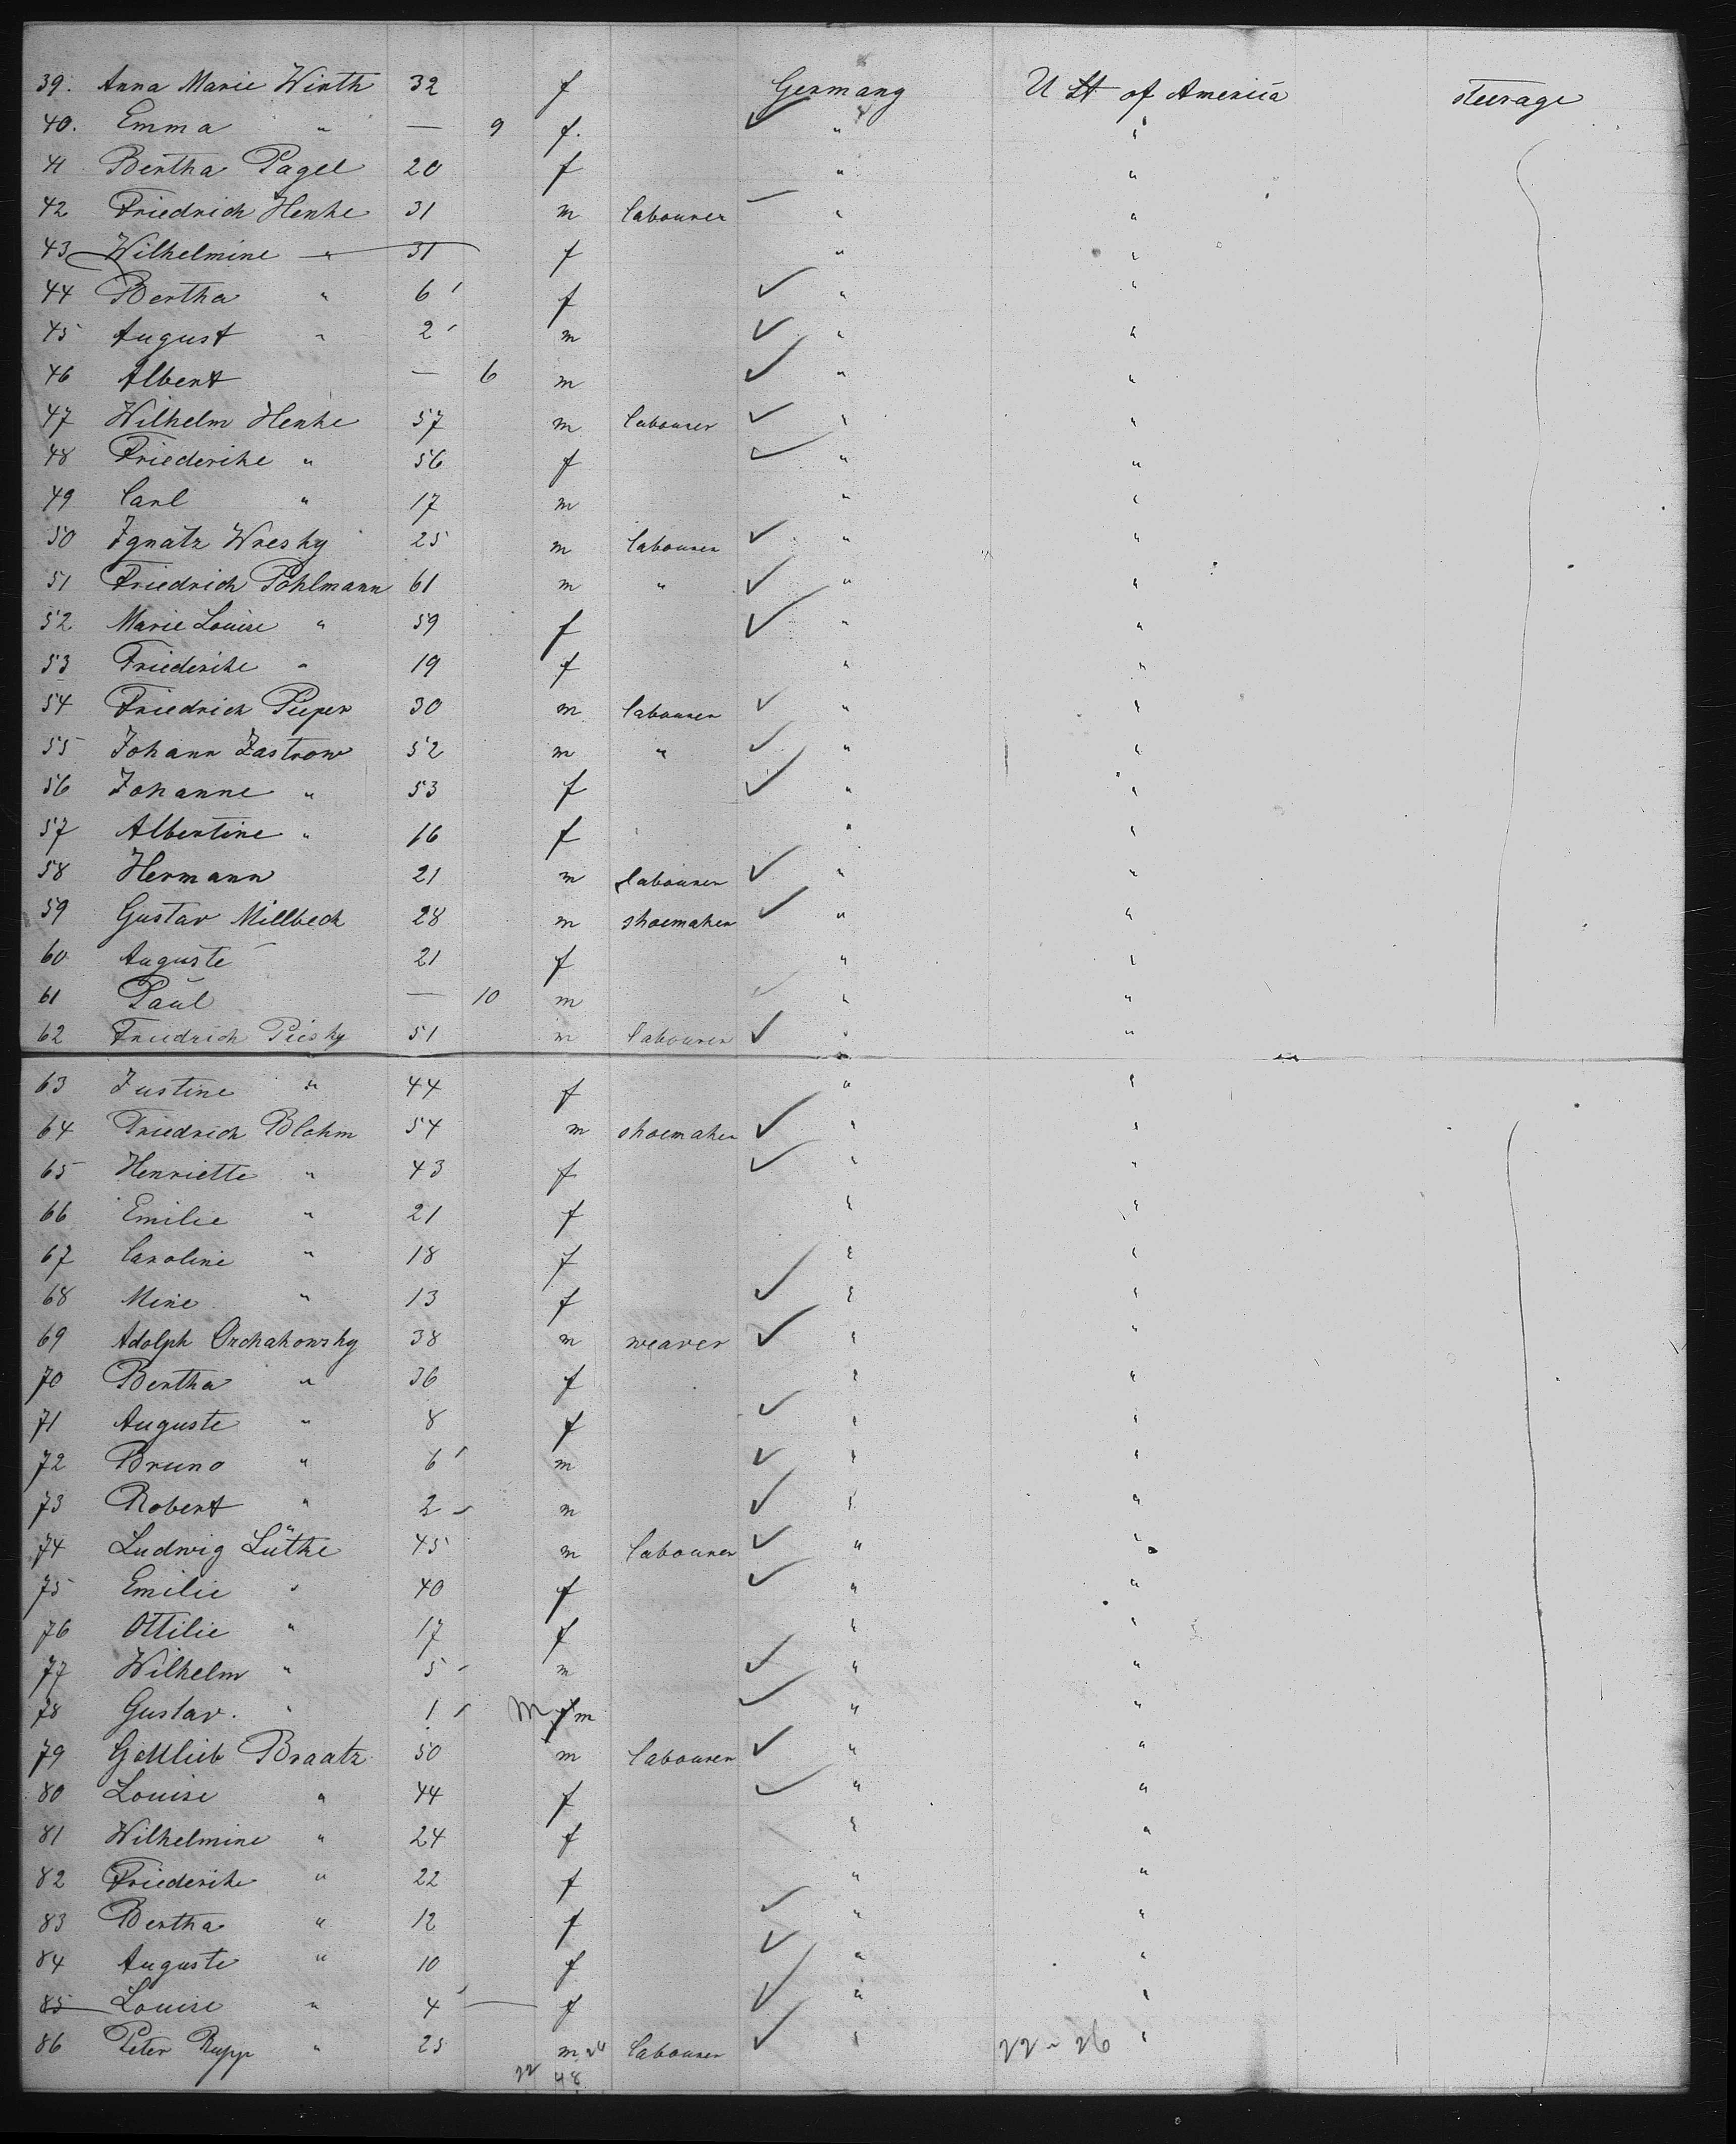 39. Anna Marie Wirth 32 f Germany U St of America steerage
40. Emma " — 9 f. " "
41 Bertha Pagel 20 f " "
42 Friedrich Henke 31 m labourer " "
43 Wilhelmine " 31 f " "
44 Bertha " 6 f " "
45 August " 2 m " "
46 Albert — 6 m " "
47 Wilhelm Henke 57 m labourer " "
48 Friederike " 56 f " "
49 Carl " 17 m " "
50 Ignatz Wresky 25 m labourer " "
51 Friedrich Pohlmann 61 m " " "
52 Marie Louise " 59 f " "
53 Friederike " 19 f " "
54 Friedrich Pieper 30 m labourer " "
55 Johann Zastrow 52 m " " "
56 Johanne " 53 f " "
57 Albertine " 16 f " "
58 Hermann 21 m labourer " "
59 Gustav Millbeck 28 m shoemaker " "
60 Auguste 21 f " "
61 Paul — 10 m " "
62 Friedrich Piesky 51 m labourer " "
63 Justine " 44 f " "
64 Friedrich Blohm 54 m shoemaker " "
65 Henriette " 43 f " "
66 Emilie " 21 f " "
67 Caroline " 18 f " "
68 Mine " 13 f " "
69 Adolph Orchakowsky 38 m weaver " "
70 Bertha " 36 f " "
71 Auguste " 8 f " "
72 Bruno " 6 m " "
73 Robert " 2 m " "
74 Ludwig Lüthe 45 m labourer " "
75 Emilie " 40 f " "
76 Ottilie " 17 f " "
77 Wilhelm " 5 m " "
78 Gustav. " 1 M f m " "
79 Gottlieb Braatz 50 m labourer " "
80 Louise " 44 f " "
81 Wilhelmine " 24 f " "
82 Friederike " 22 f " "
83 Bertha " 12 f " "
84 Auguste " 10 f " "
85 Louise " 4 f " "
86 Peter Rupp " 25 m 24 labourer " 22 - 26 "
22 48